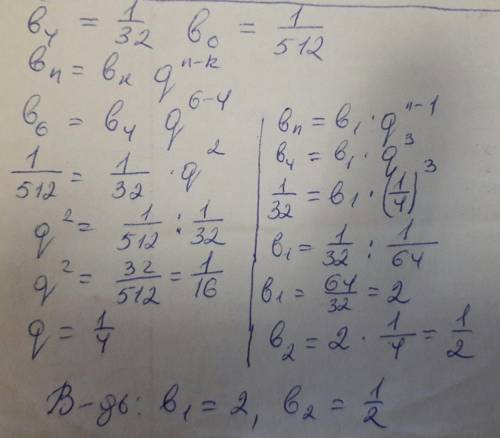 в₄ = 1/32   в₆ = 1/512
вₙ = вₖ q^(n-k)
в₆ = в₄ q^(6-4)
1/512 = 1/32 · q²
q² = 1/512 : 1/32
q² = 32/512 = 1/16
q = 1/4
вₙ = в₁ · q^(n-1)
в₄ = в₁ · q³
1/32 = в₁ · (1/4)³
в₁ = 1/32 : 1/64
в₁ = 64/32 = 2
в₂ = 2 · 1/4 = 1/2
В-дь: в₁ = 2, в₂ = 1/2